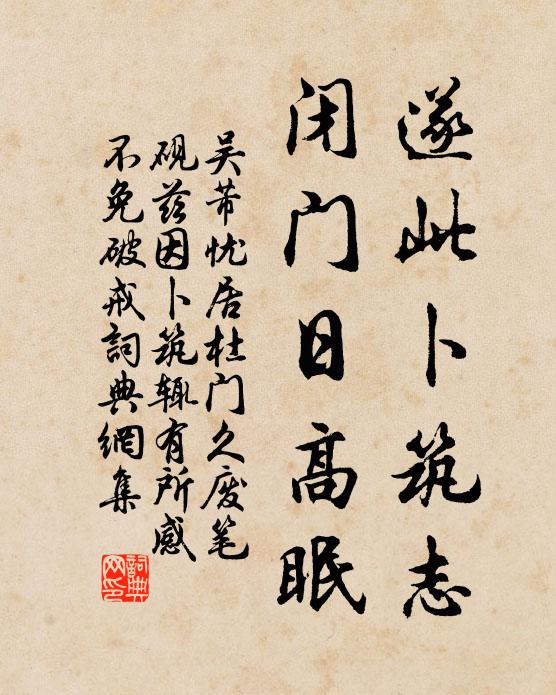 遂此卜筑志
闭门日高眠
吴芾忧居杜门久废笔
砚兹因卜筑辄有所感
不免破戒詞典網集
詞典网印